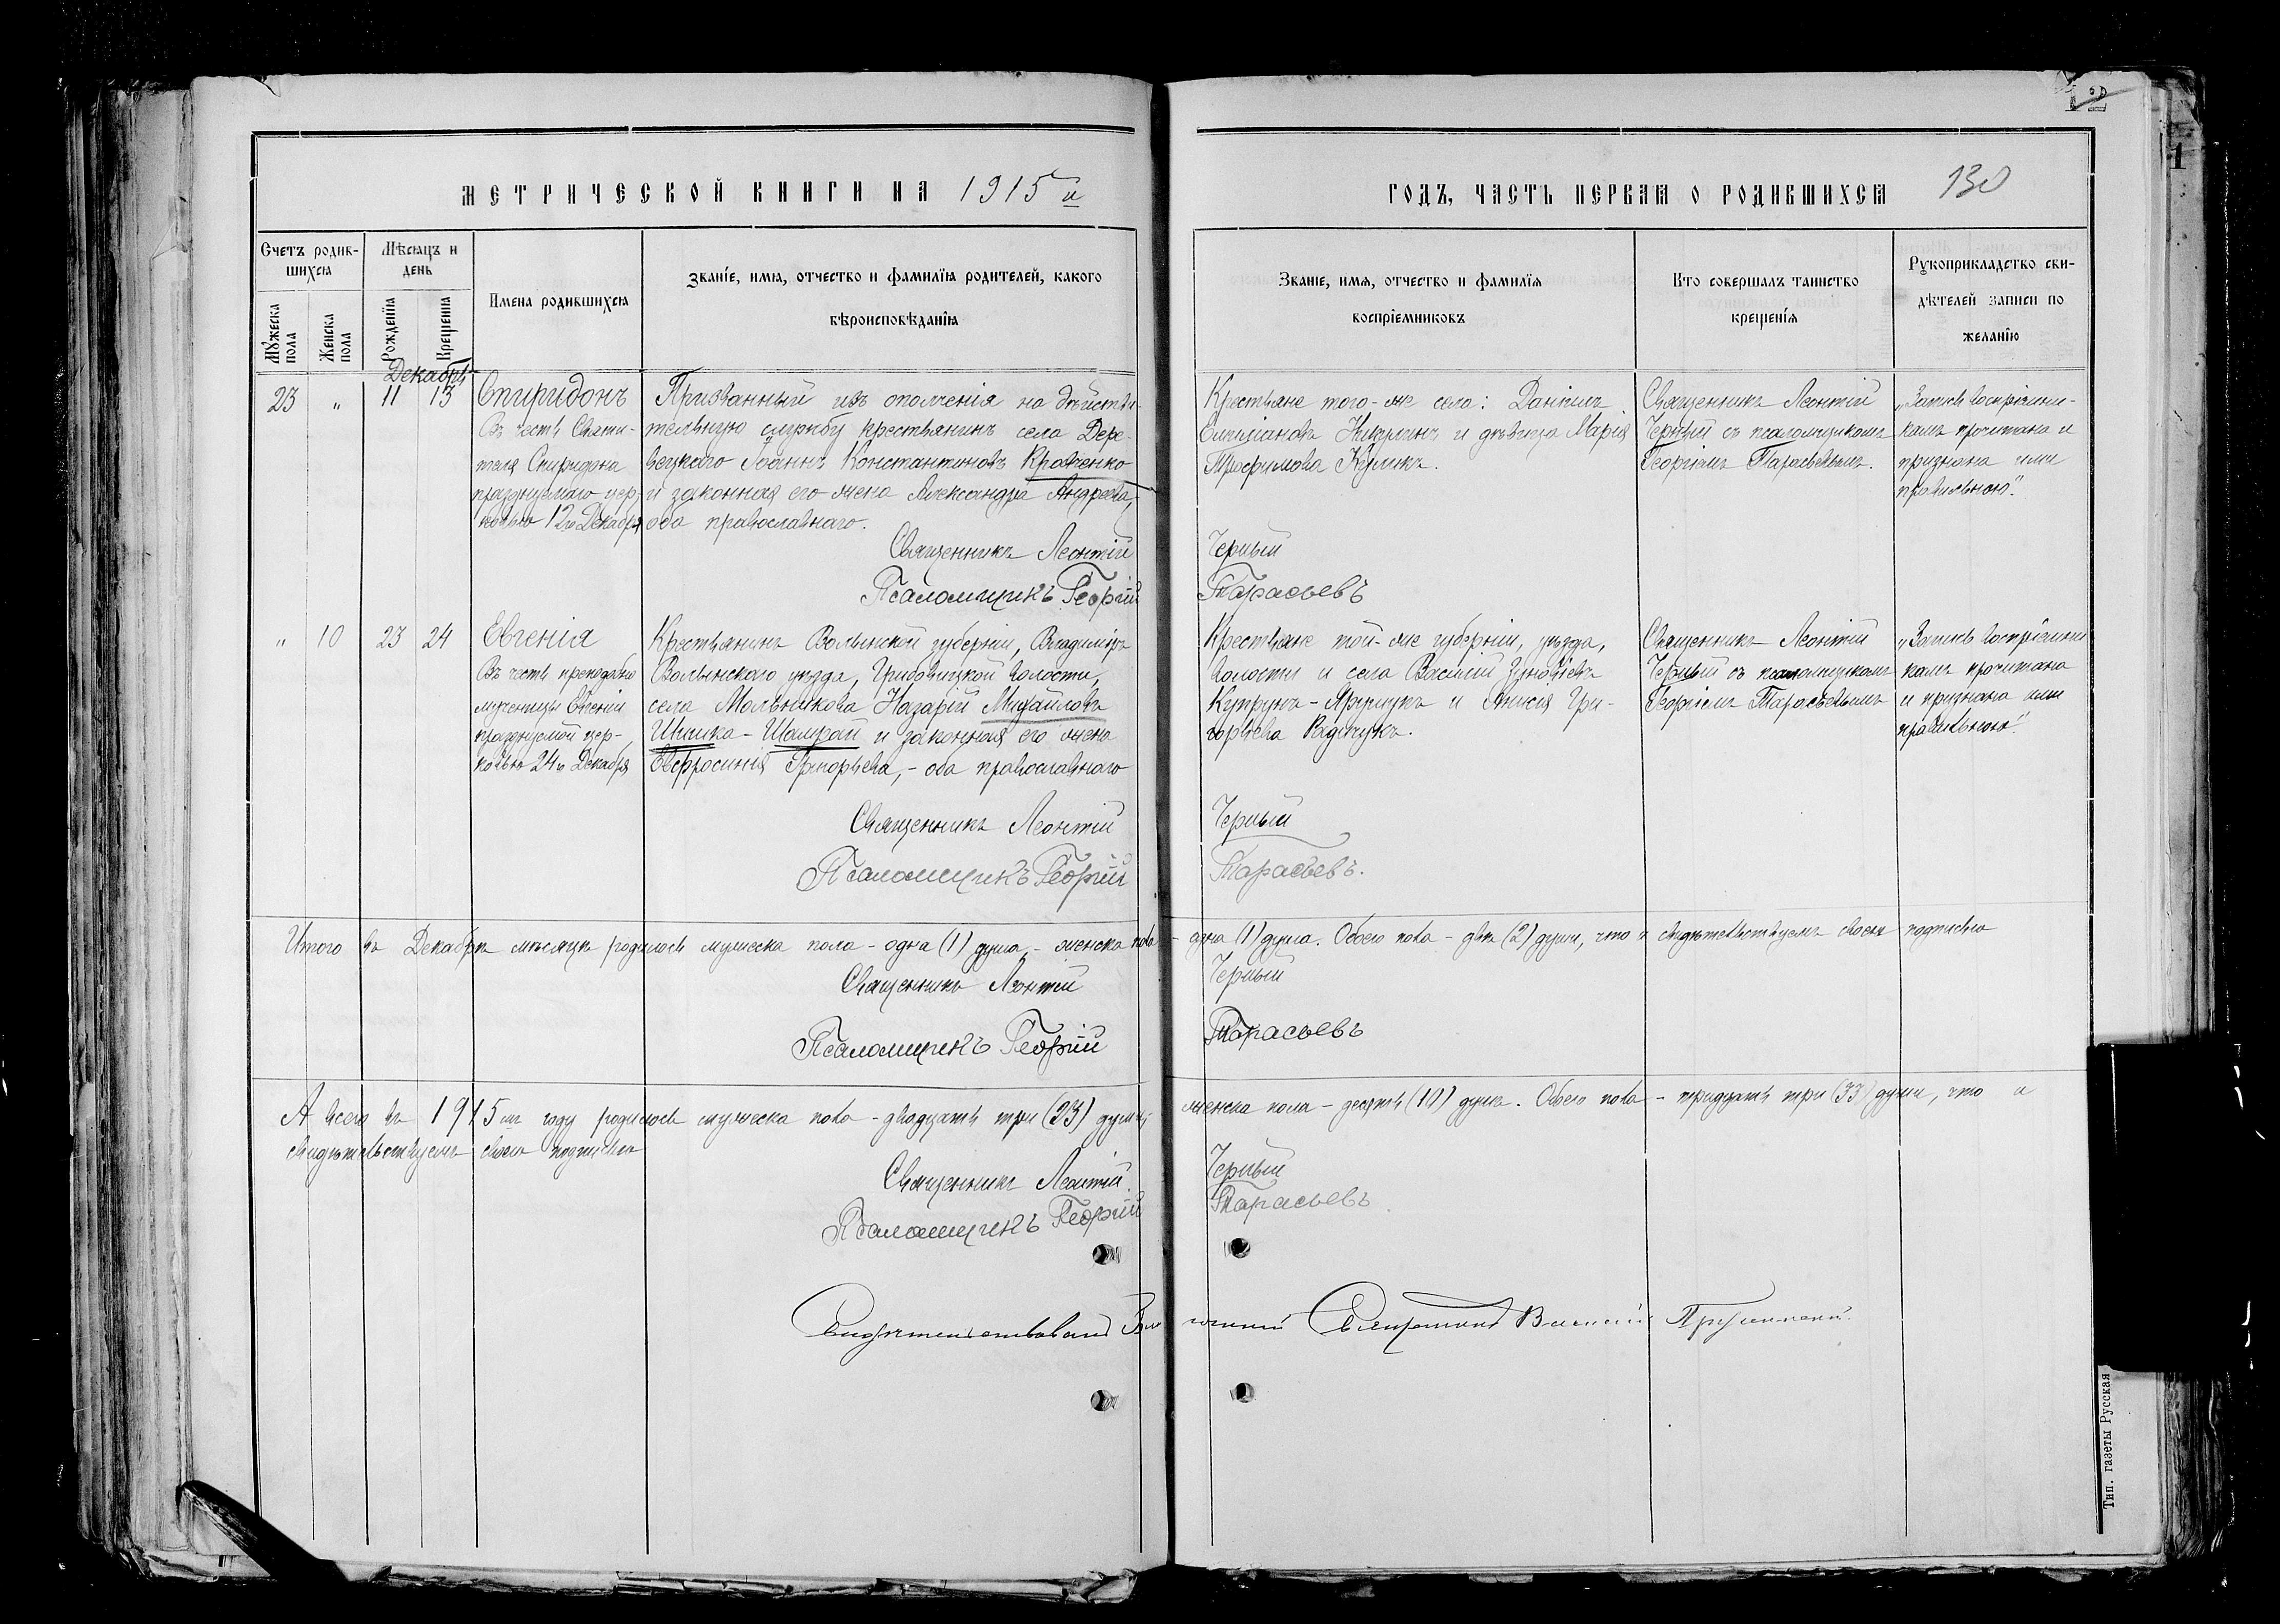 12
МЕТРИЧЕСКОЙ КНИГИ НА 1915 й
ГОДЪ, ЧАСТЬ ПЕРВАЯ О РОДИВШИХСЯ
130
Счетъ родив-
шихся
Мужеска пола
Женска пола
Мѣсяцъ и
день
Рожденія
Крещенія
Имена родившихся
Званіе, имя, отчество и фамилія родителей, какого
вѣроисповѣданія
Званіе, имя, отчество и фамилія
воспріемниковъ
Кто совершалъ таинство
крещенія
Рукоприкладство сви-
дѣтелей записи по
желанію
Декабрь
23 " 11 13
Спиридонъ
Въ честь Святи-
теля Спиридона
празднуемаго цер-
ковью 12го Декабря
Призванный изъ ополченія на дѣйстви-
тельную службу крестьянинъ села Дере-
вецкаго Іоаннъ Константиновъ Кравченко
и законная его жена Александра Андреева,-
оба православнаго.
Крестьяне того-же села: Даніилъ
Никулинъ и дѣвица Марія
Трофимова Куликъ.
Священникъ Леонтій
Черный съ псаломщикомъ
Георгіемъ Тарасьевымъ.
„Запись воспріемни-
камъ прочитана и
признана ими
правильною".
Священникъ Леонтій Черный
Псаломщикъ Георгій Тарасьевъ
" 10 23 24
Евгенія
Въ честь преподобно
мученицы Евгеніи
празднуемой цер-
ковью 24го Декабря
Крестьянинъ Волынской губерніи, Владиміръ
Волынскаго уѣзда, Грибовицкой волости,
села Мольникова Назарій Михайловъ
Шишка-Шамрай и законная его жена
Евфросинія Григорьева,- оба православнаго
Крестьяне той-же губерніи, уѣзда,
волости и села Василій Зиновіевъ
Купрунъ- и Анисія Гри-
горьева Радчукъ.
Священникъ Леонтій
Черный съ псаломщикомъ
Георгіемъ Тарасьевымъ
„Запись воспріемни
камъ прочитана
и признана ими
правильною".
Священникъ Леонтій Черный
Псаломщикъ Георгій Тарасьевъ.
Итого въ Декабрѣ мѣсяцѣ родилось мужеска пола - одна (1) душа,- женска пола - одна (1) душа. Обоего пола - двѣ (2) души, что и свидѣтельствуемъ своею подписью
Священникъ Леонтій Черный
Псаломщикъ Георгій Тарасьевъ
А всего въ 1915мъ году родилось мужеска пола - двадцать три (23) души, женска пола - десять (10) душъ. Обоего пола - тридцать три (33) души, что и
свидѣтельствуемъ своею подписью
Священникъ Леонтій Черный
Псаломщикъ Георгій Тарасьевъ
Свидѣтельствовалъ Священникъ
Тип. газеты Русская